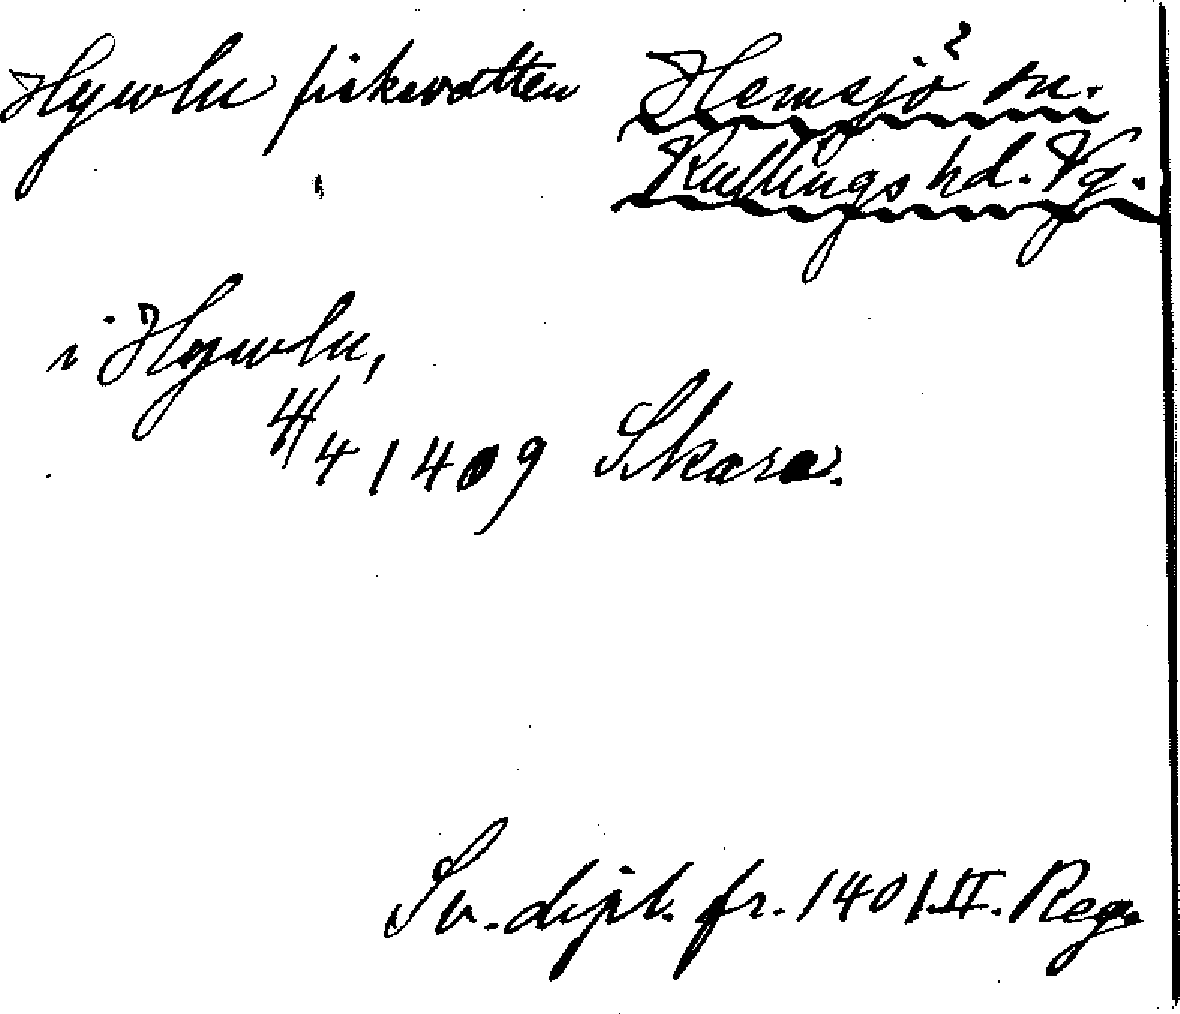 Hywlu fiskevatten Hemsjö? sn.
Kullings hd. Vg.
i Hywlu,
4/4 1409 Skara.
Sv. dipl. fr. 1401 II. Reg.